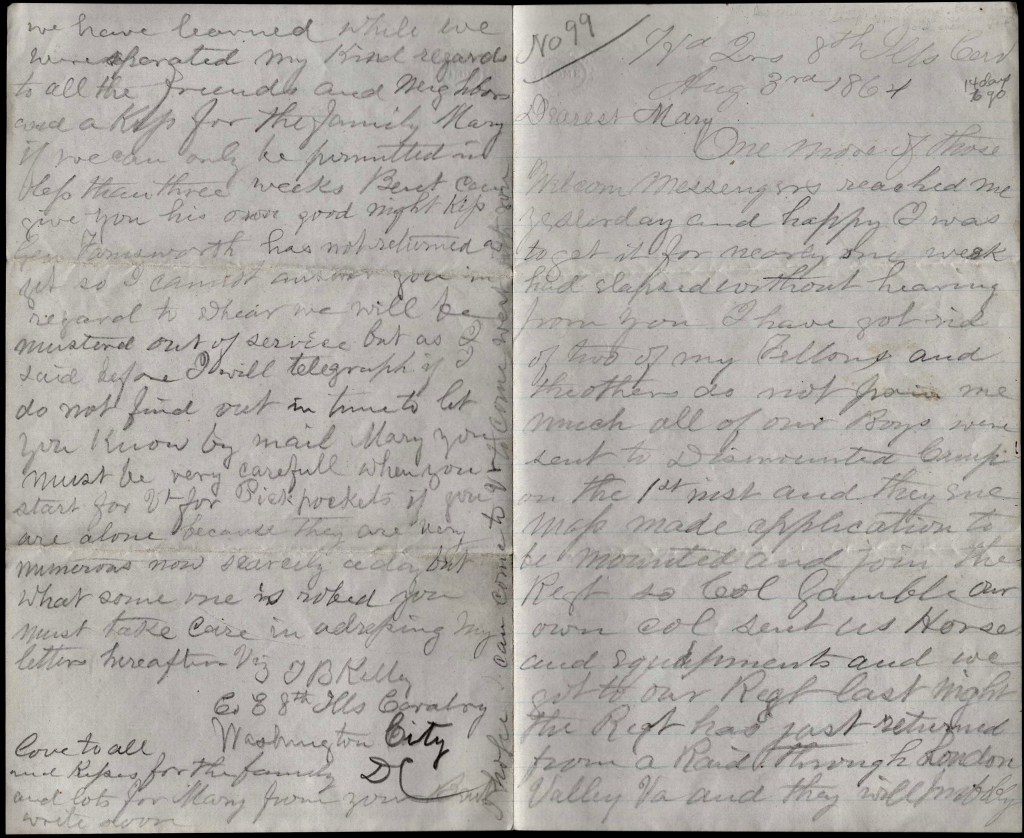 we have learned while we
were sperated my Kind regards
to all the friends and Neighbors
and a Kiss for the family Mary
if we can only be permitted in
less than three weeks Bent can
give you his own good night Kiss
Gen Farnsworth has not returned
yet so I cannot answer you in
regard to whear we will be
mustered out of service but as I
said before I will telegraph if I
do not find out in time to let
you Know by mail Mary you
must be very carefull when you
start for Vt for Pickpockets if you
are alone because they are very
numerous now scarcely a day but
what some one is robed you
must take care in adressing my
letters hereafter Viz
T B Kelly
Co E 8th Ills Cavalry
Washington City
D C
Love to all
and Kisses for the family
and lots for Mary from your Bent
write soon
I hope I can come to Vt & come west with you
No 99
Hd Qrs 8th Ills Cav
Aug 3rd 1864
14 days
to go
Dearest Mary
One more of those
Welcom Messengers reached me
yesterday and happy I was
to get it for nearly one week
had elapsed without hearing
from you I have got rid
of two of my Fellons and
the others do not pain me
much all of our Boys were
sent to Dismounted Camp
on the 1st inst and they ene
mass made application to
be mounted and join the
Regt so Col Gamble our
own col sent us Horse
and equipments and we
got to our Regt last night
the Regt has just returned
from a Raid through London
Valley Va and they will probably